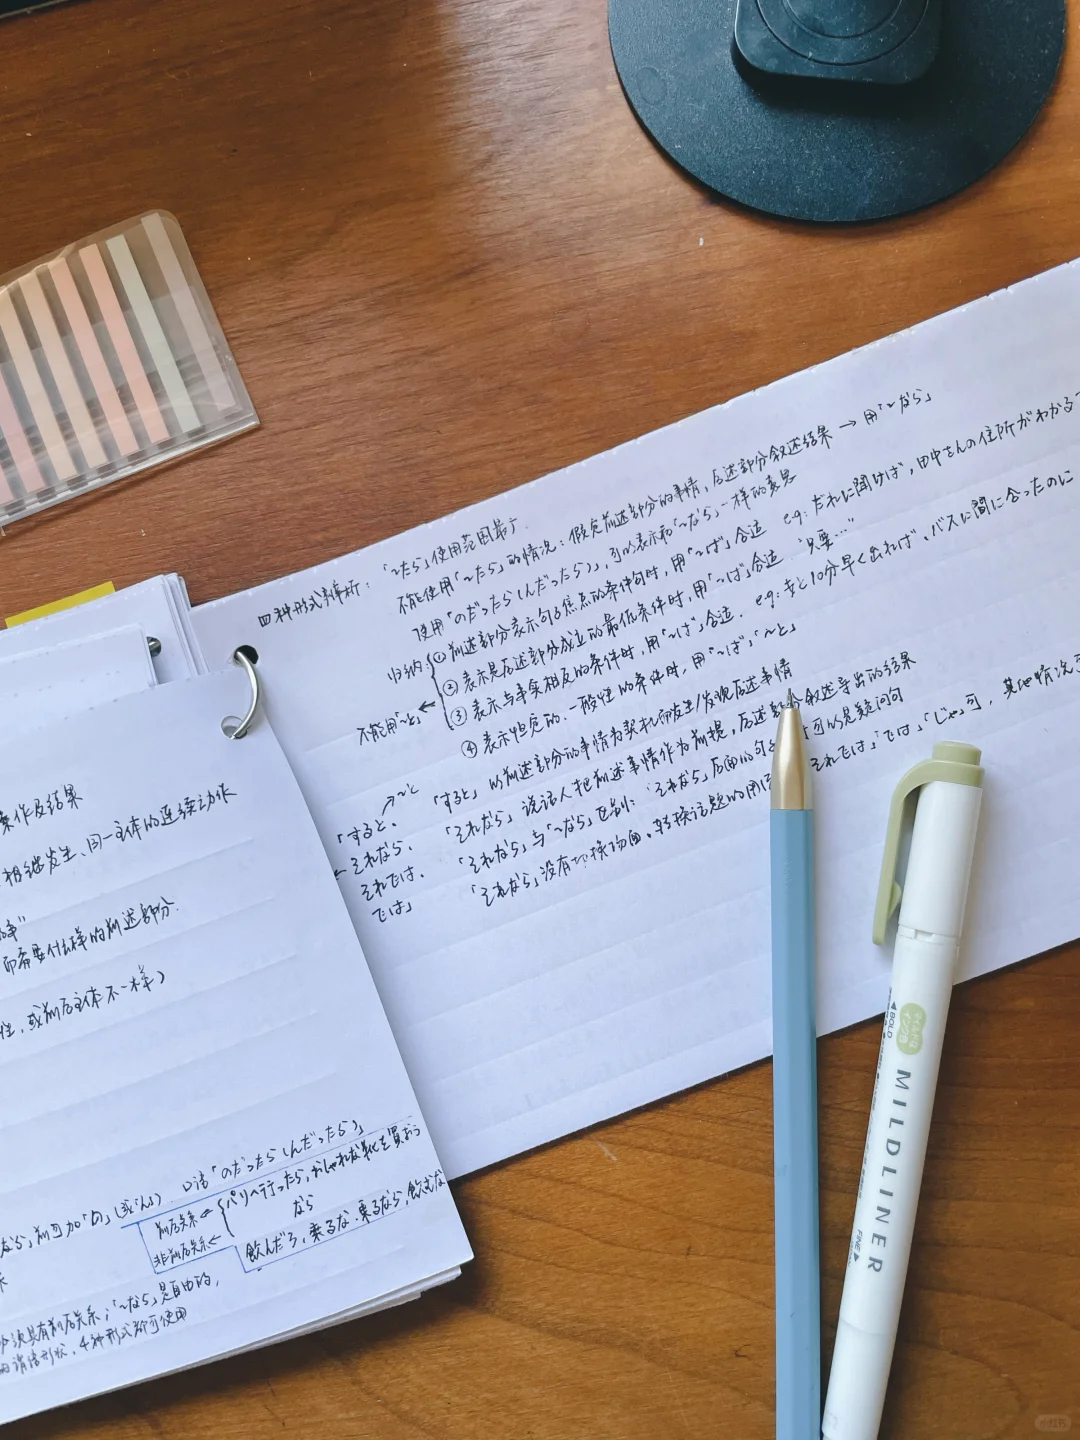 四种形式辨析：「〜たら」使用范围最广.
不能使用「〜たら」的情况：假定前述部分的事情，后述部分叙述结果 → 用「〜なら」
使用「のだったら(んだったら)」，可以表示和「〜なら」一样的意思
归纳 ① 前述部分表示句子焦点的条件句时，用「〜ば」合适 eg：だれに聞けば，田中さんの住所がわかる
② 表示是后述部分成立的最低条件时，用「〜ば」合适 "只要…"
③ 表示与事实相反的条件时，用「〜ば」合适. eg：もっと10分早く出れば、バスに間に合ったのに
不能用「〜と」← ④ 表示恒定的、一般性的条件时，用「〜ば」「〜と」
〜と
「すると、
それなら、
それでは、
では」
「すると」以前述部分的事情为契机而发生/发现后述事情
「それなら」说话人把前述事情作为前提，后述部分叙述导出的结果
「それなら」与「〜なら」区别：「それなら」后面的句 可以是疑问句
「それなら」没有切换场面、转换话题的用 それでは」「では」「じゃ」可，其他情况
操作及结果
相继发生、同一主体的连续动作
而需要什么样的前述部分.
性，或前后主体不一样）
なら」前可加「の」(或ん) 口语「のだったら(んだったら)」
前后关系 ← パリへ行ったら，おしゃれな靴を買おう
なら
非前后关系 ← 飲んだら，乗るな．乗るなら，飲むな
须具有前后关系；「〜なら」是自由的，
4种形式都可使用
MILDLINER
BOLD
FINE
マイルドな
インク色
小红书